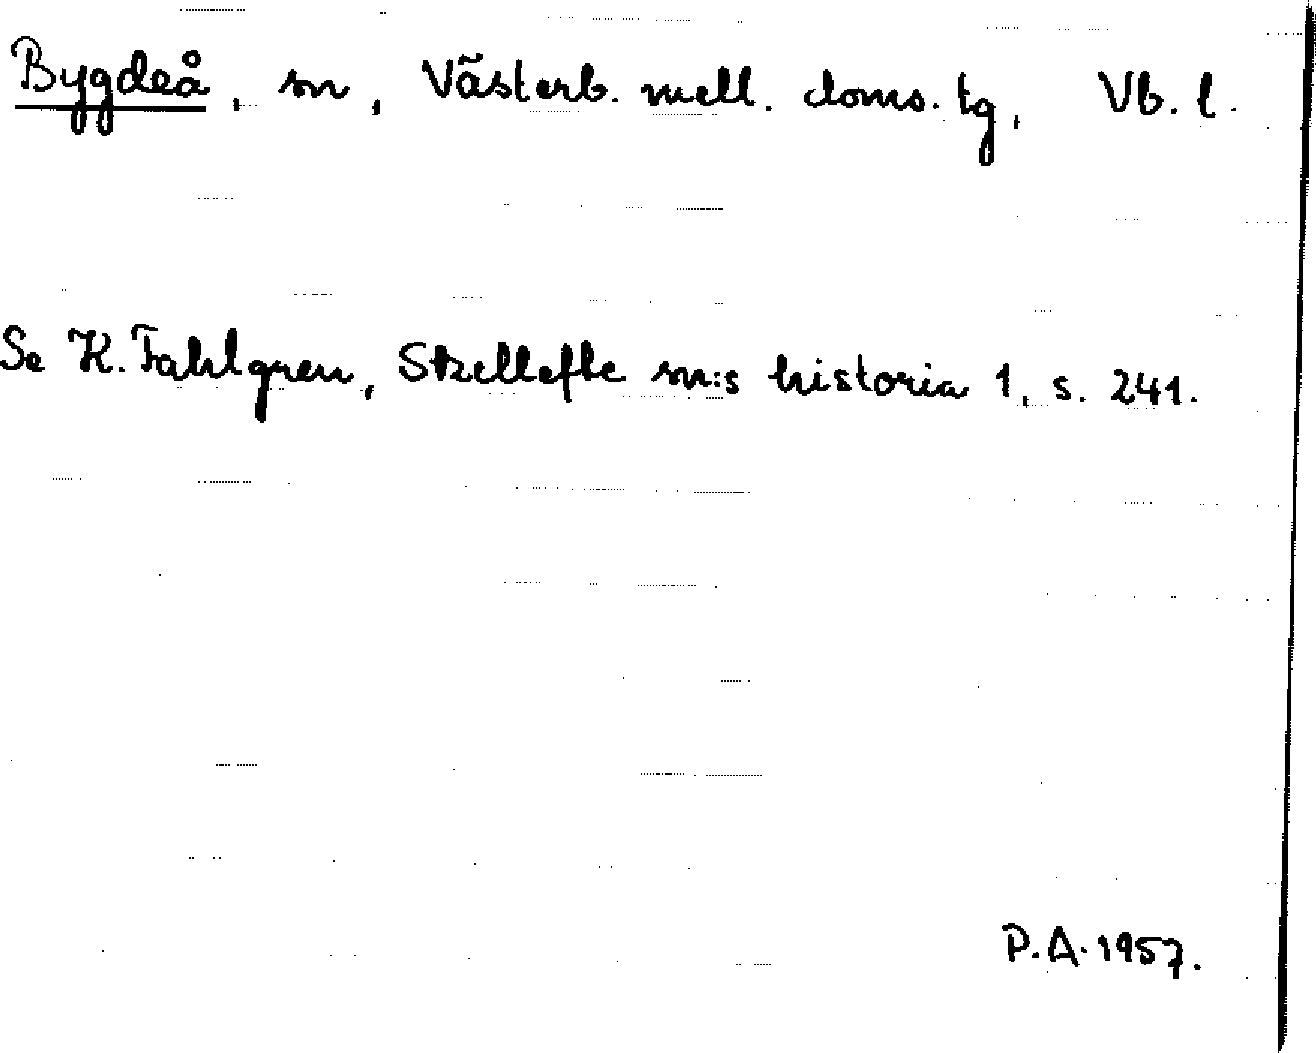 Bygdeå, sn, Västerb. mell. doms. tg, Vb. l.
Se K. Fahlgren, Skellefte sn:s historia 1, s. 241.
P.A. 1957.